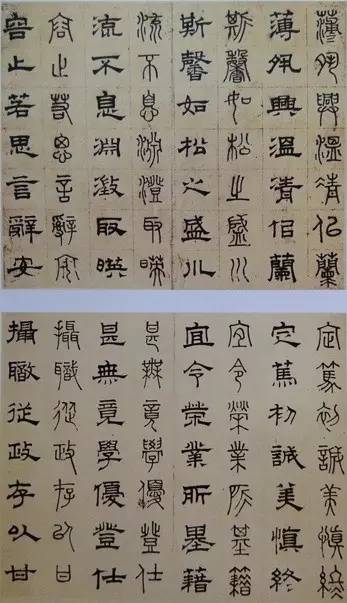 薄夙興溫清佀蘭
薄夙興溫清佀蘭
斯馨如松之盛川
斯馨如松之盛川
流不息淵澄取暎
流不息淵澂取暎
容止若思言辭安
容止若思言辭安
定篤初誠美慎終
定篤初誠美慎終
宜令榮業所基籍
宜令榮業所基藉
甚無竟學優登仕
甚無竟學優登仕
攝職從政存以甘
攝職從政存以甘